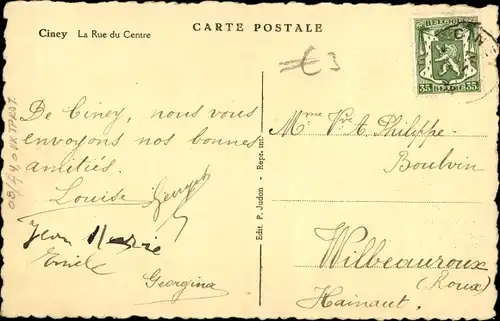 CARTE POSTALE
Ciney La Rue du Centre
BELGIQUE
35 35
De Ciney, nous vous
envoyons nos bonnes
amitiés.
Louise Georges
Jean Marie
Emile
Georgina
Edit. P. Judon - Repr. int.
Mme Vve A. Philippe-
Boulvin
Wilbeauroux
(Roux)
Hainaut.